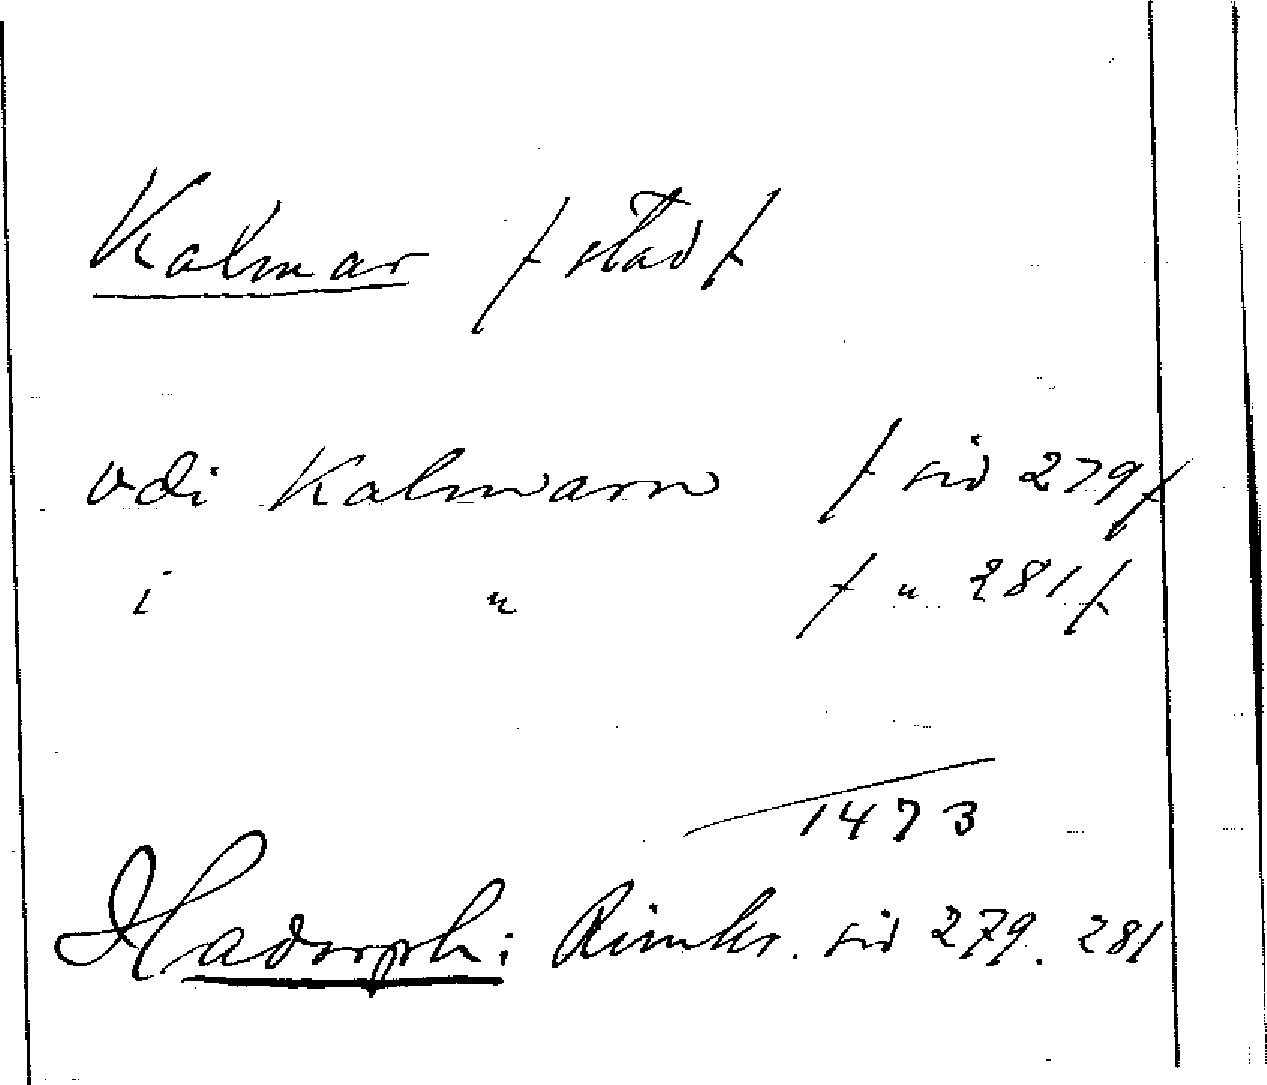 Kalmar /stad/
vdi Kalmarn /sid 279/
i " /" 281/
1473
Hadorph: Rimkr. sid 279. 281